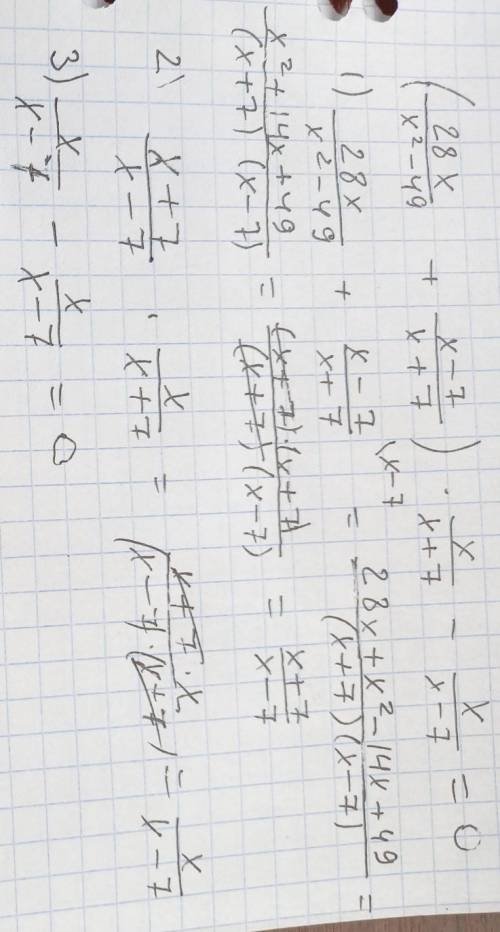 (28x/(x²-49) + (x-7)/(x+7)) · x/(x+7) - x/(x-7) = 0
1) 28x/(x²-49) + (x-7)/(x+7) \x-7 = (28x+x²-14x+49)/((x+7)(x-7)) =
(x²+14x+49)/((x+7)(x-7)) = ((x+7)·(x+7))/((x+7)·(x-7)) = (x+7)/(x-7)
2) (x+7)/(x-7) · x/(x+7) = (x+7·x)/((x-7)·(x+7)) = x/(x-7)
3) x/(x-7) - x/(x-7) = 0